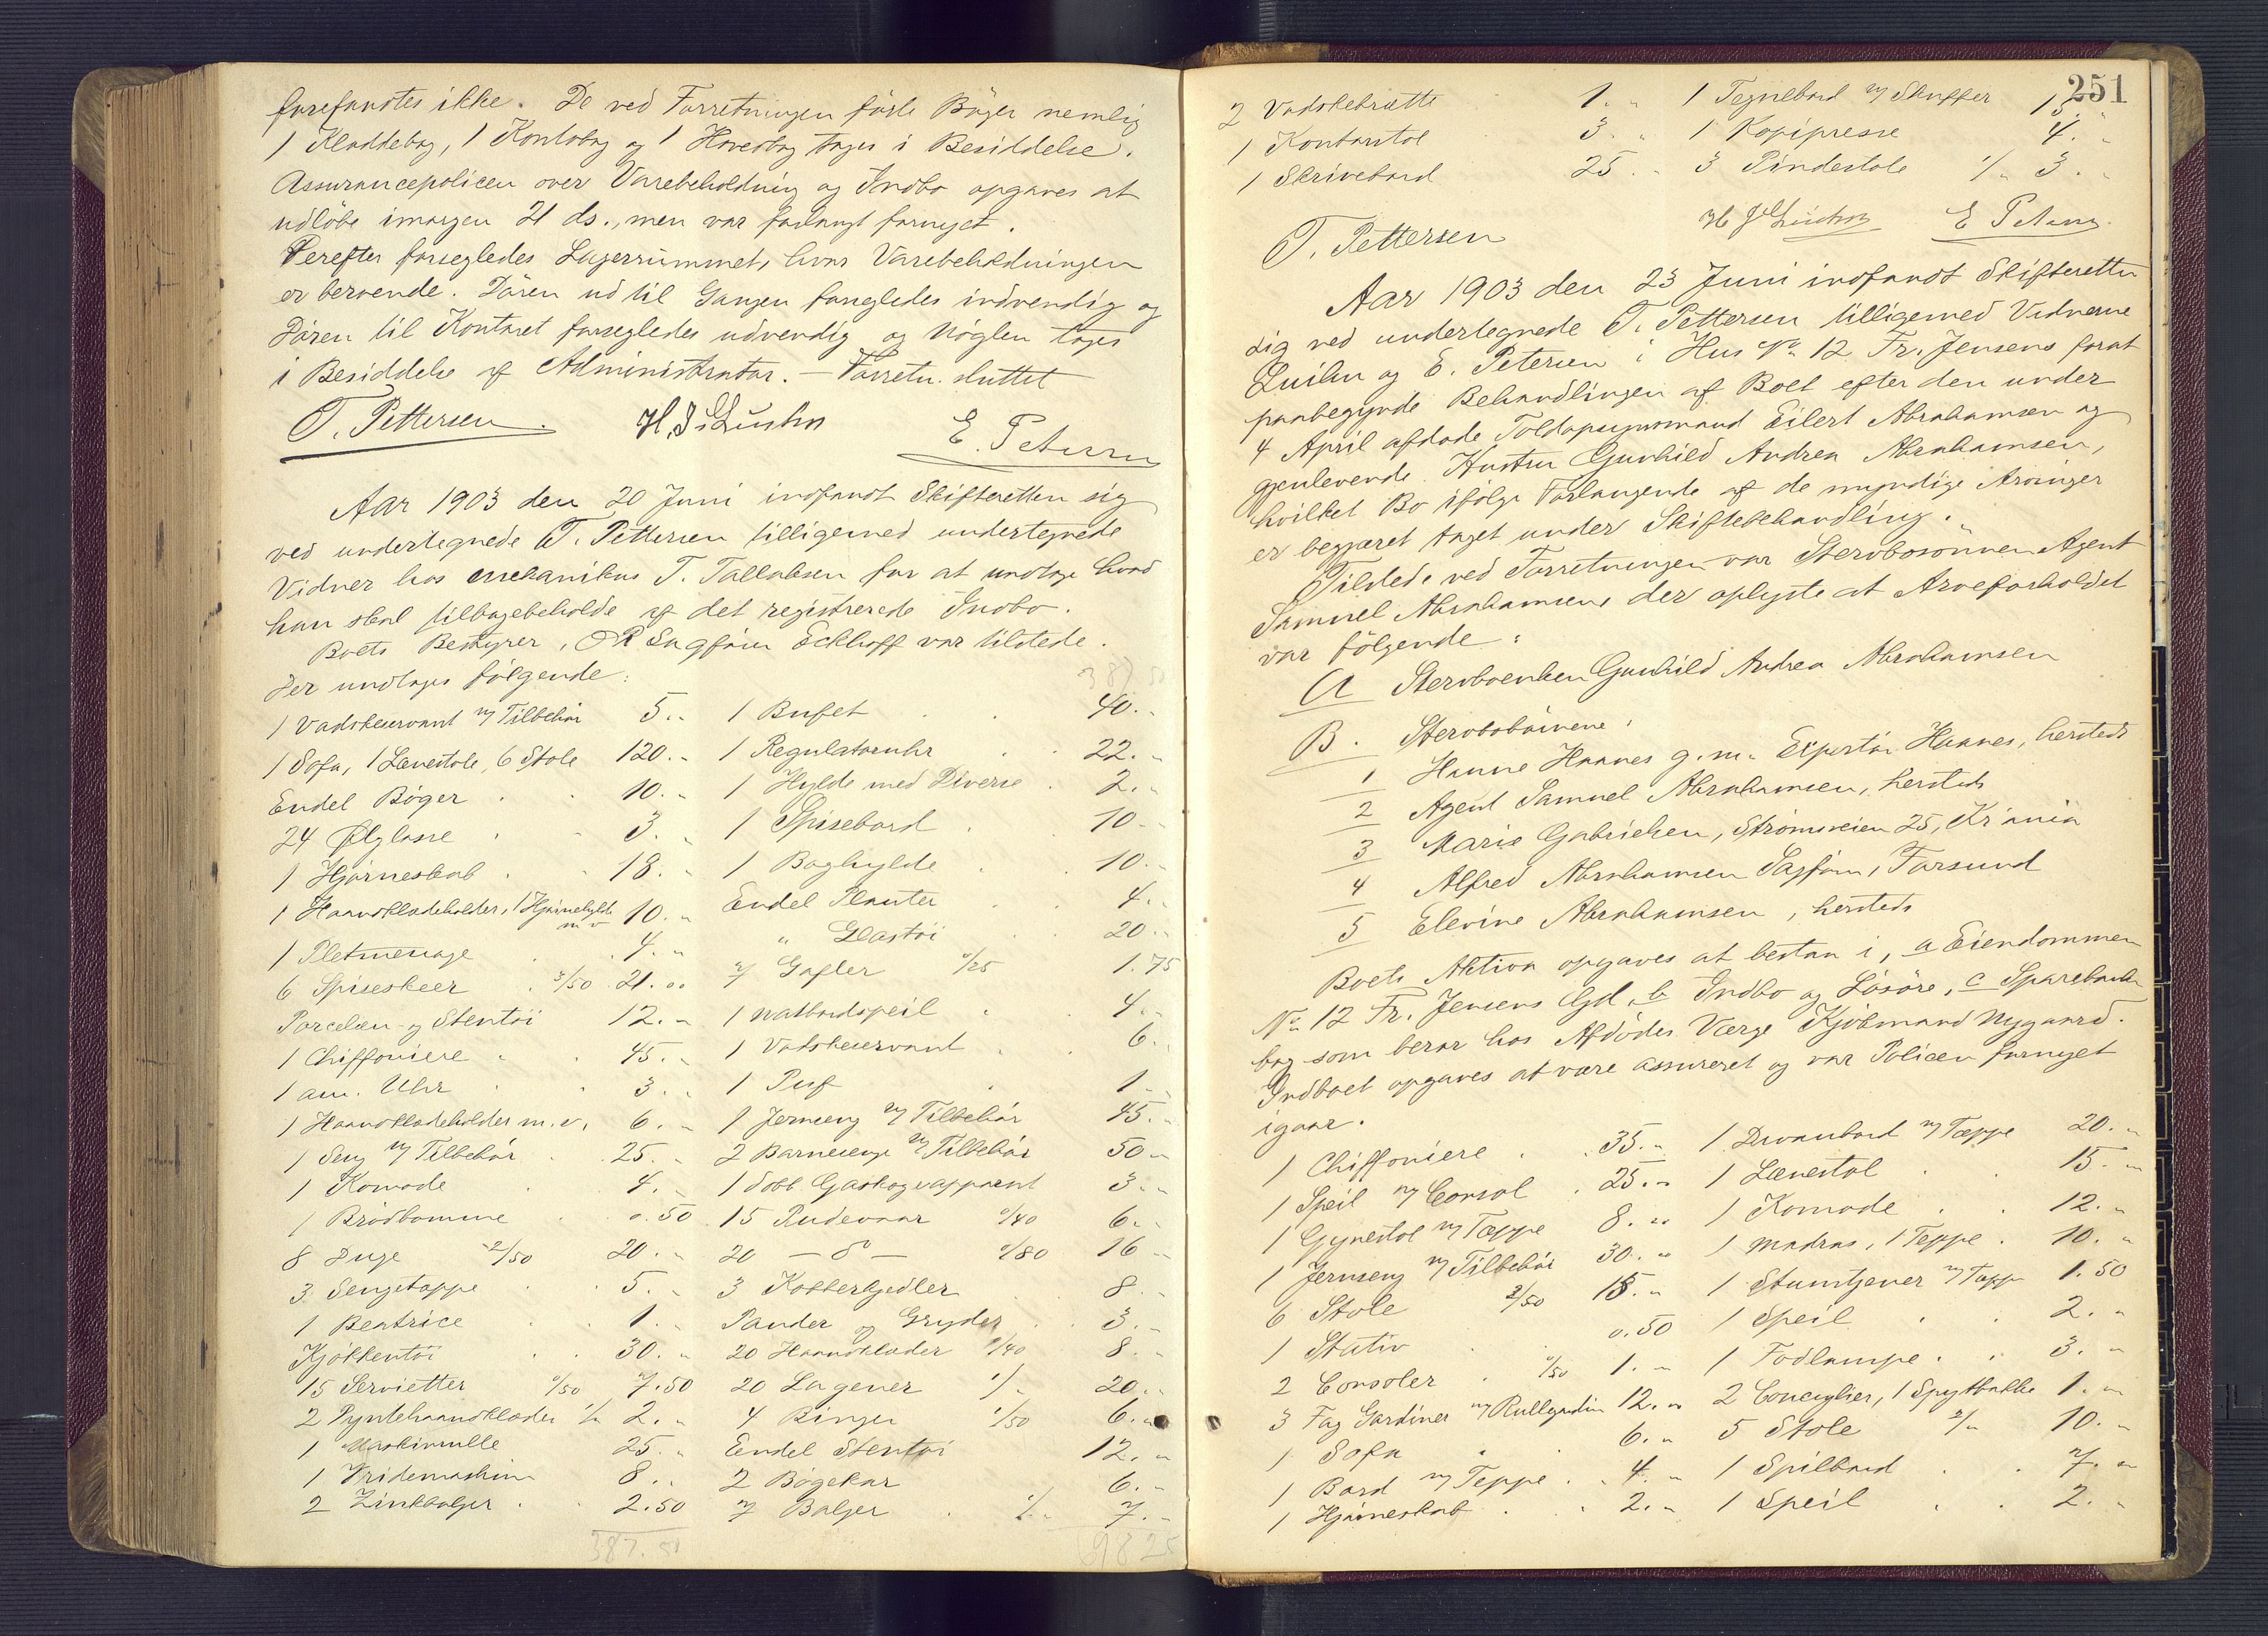 forefandtes ikke. De ved Forretningen förte Böger nemlig
1 Kladdebog, 1 Kontobog og 1 Hovedbog toges i Besiddelse.
Assurancepolicen over Varebeholdning og Indbo opgaves at
udlöbe imorgen 21 ds., men var forlangt fornyet.
Derefter forsegledes Lagerrummet, hvor Varebeholdningen
er beroende. Dören ud til Gangen forsegledes indvendig og
Dören til Kontoret forsegledes udvendig og Nöglen toges
i Besiddelse af Administrator. — Forretn. sluttet
T. Pettersen. E. Petersen
Aar 1903 den 20 Juni indfandt Skifteretten sig
ved undertegnede T. Pettersen tilligemed undertegnede
Vidner hos mekanikus T. Tallaksen for at undtage hvad
han skal tilbagebeholde af det registrerede Indbo.
Boets Bestyrer, OR Sagförer Eckhoff var tilstede.
Der undtages fölgende:
1 Vadskeservant m/ Tilbehör 5.. 1 Bufet 40..
1 Sofa, 1 Lænestole, 6 Stole 120.. 1 Regulatoruhr 22..
Endel Böger 10.. 1 Hylde med Diverse 2..
24 Ölglasse 3.. 1 Spisebord 10..
1 Hjörneskab 18.. 1 Boghylde 10..
1 Haandklædeholder, 1 Hjörnehylde m v 10.. Endel Planter 4..
1 Pletmenage 4.. " Glastöi 20..
6 Spiseskeer 3/50 21.00 7 Gafler 0/25 1.75
Porcelæn og Stentöi 12.. 1 Natbordspeil 4..
1 Chiffoniere 45.. 1 Vadskeservant 6..
1 am. Uhr 3.. 1 Puf 1..
1 Haandklædeholder m.v. 6.. 1 Jernseng m/ Tilbehör 45..
1 Seng m/ Tilbehör 25.. 2 Barnesenge m/ Tilbehör 50..
1 Komode 4.. 1 dobb Gaskogeapparat 3..
1 Brödbomme 0.50 15 Pudevaar 0/40 6..
8 Duge 2/50 20.. 20 — do — 0/80 16..
3 Sengetæppe 5.. 3 Kobberkjedler 8..
1 Beatrice 1.. Pander og Gryder 3..
Kjökkentöi 30.. 20 Haandklæder 0/40 8..
15 Servietter 0/50 7.50 20 Lagener 1/.. 20..
2 Pyntehaandklæder 1/.. 2.. 4 Binger 1/50 6..
1 Maskinrulle 25.. Endel Stentöi 12..
1 Vridemaskin 8.. 2 Bögekar 6..
2 Zinkbaljer 2.50 7 Baljer 1/.. 7..
387.50
251
2 Vadskebrætte 1.. 1 Tegnebord m/ Skuffer 15..
1 Kontorstol 3.. 1 Kopipresse 4..
1 Skrivebord 25.. 3 Pindestole 1/.. 3..
T. Pettersen E Petersen
Aar 1903 den 23 Juni indfandt Skifteretten
sig ved undertegnede T. Pettersen tilligemed Vidnerne
og E. Petersen i Hus No 12 Fr. Jensens forat
paabegynde Behandlingen af Boet efter den under
4 April afdöde Toldopsynsmand Eilert Abrahamsen og
gjenlevende Hustru Gunhild Andrea Abrahamsen,
hvilket Bo ifölge Forlangende af de myndige Arvinger
er begjæret taget under Skiftebehandling.
Tilstede ved Forretningen var Stervbosönnen Agent
Samuel Abrahamsen, der oplyste at Arveforholdet
var fölgende:
A Stervboenken Gunhild Andrea Abrahamsen
B. Stervbobörnene:
1 Hanne Haanes g.m. Expeditör Haanes, hersteds
2 Agent Samuel Abrahamsen, hersteds
3 Marie Gabrielsen, Strömsveien 25, Kr ania
4 Alfred Abrahamsen Sagförer, Farsund
5 Elevine Abrahamsen, hersteds
Boets Aktiva opgaves at bestaa i, a Eiendommen
No 12 Fr. Jensens Gd, b Indbo og Lösöre, c Sparebank-
bog som beror hos Afdödes Værge Kjöbmand Nygaard.
Indboet opgaves at være assureret og var Policen fornyet
igaar.
1 Chiffoniere 35.. 1 Divanbord m/ Tæppe 20..
1 Speil m/ Consol 25.. 1 Lænestol 15..
1 Gyngestol m/ Tæppe 8.. 1 Komode 12..
1 Jernseng m/ Tilbehör 30.. 1 Madras, 1 Teppe 10..
6 Stole 2/50 15.. 1 Stumtjener m/ Tæppe 1.50
1 Stativ 0.50 1 Speil 2..
2 Consoler 0/50 1.. 1 Fodlampe 3..
3 Fag Gardiner m/ Rullgardin 12.. 2 Concylier, 1 Spytbakke 1..
1 Sofa 6.. 5 Stole 2/.. 10..
1 Bord m/ Teppe 4.. 1 Spilbord 7..
1 Hjörneskab 2.. 1 Speil 2..